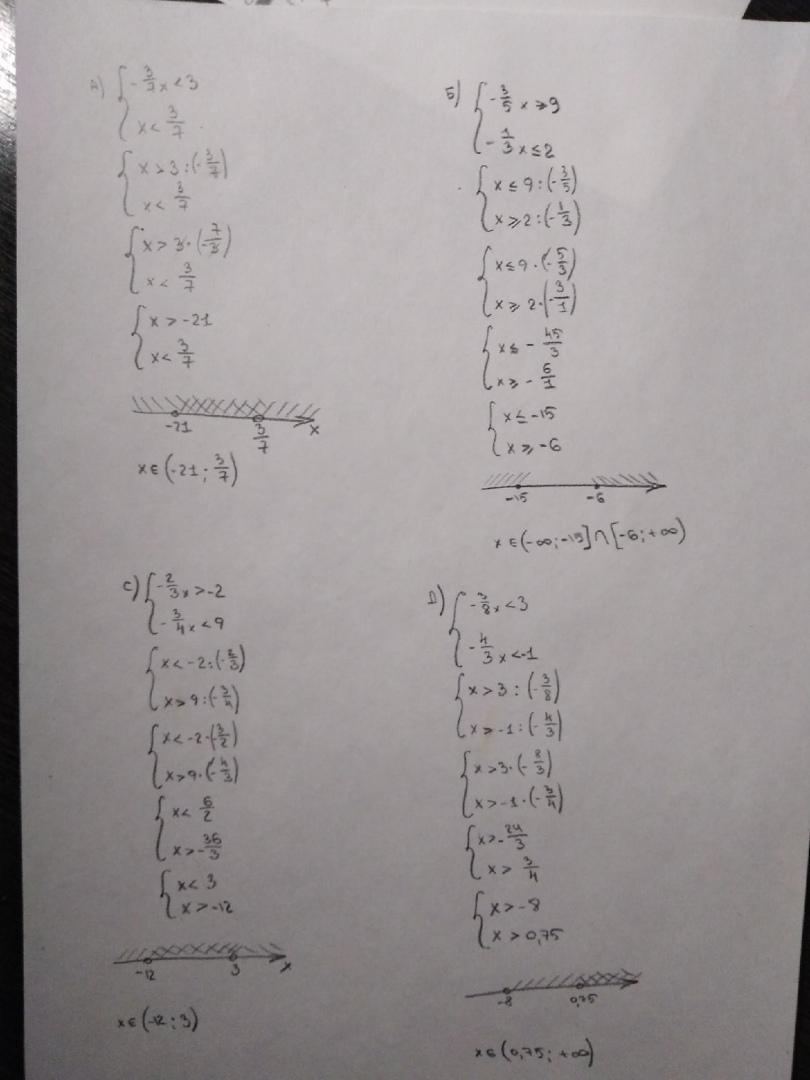 А) { -3/7 x < 3
x < 3/7
{ x > 3 : (-3/7)
x < 3/7
{ x > 3 · (-7/3)
x < 3/7
{ x > -21
x < 3/7
-21 3/7 x
x ∈ (-21 ; 3/7)
Б) { -3/5 x ≥ 9
-1/3 x ≤ 2
{ x ≤ 9 : (-3/5)
x ≥ 2 : (-1/3)
{ x ≤ 9 · (-5/3)
x ≥ 2 · (-3/1)
{ x ≤ -45/3
x ≥ -6/1
{ x ≤ -15
x ≥ -6
-15 -6
x ∈ (-∞; -15] ∩ [-6; +∞)
С) { -2/3 x > -2
-3/4 x < 9
{ x < -2 : (-2/3)
x > 9 : (-3/4)
{ x < -2 · (-3/2)
x > 9 · (-4/3)
{ x < 6/2
x > -36/3
{ x < 3
x > -12
-12 3 x
x ∈ (-12 ; 3)
D) { -3/8 x < 3
-4/3 x < -1
{ x > 3 : (-3/8)
x > -1 : (-4/3)
{ x > 3 · (-8/3)
x > -1 · (-3/4)
{ x > -24/3
x > 3/4
{ x > -8
x > 0,75
-8 0,75
x ∈ (0,75; +∞)